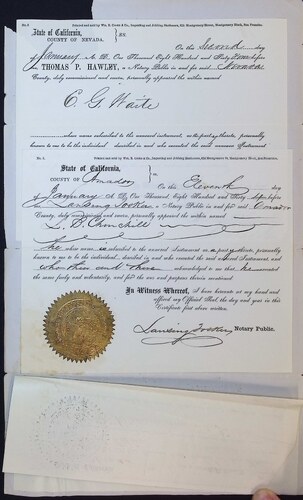 State of California,
COUNTY OF NEVADA.
On this Seventh day
of January A. D. One Thousand Eight Hundred and Sixty before
THOMAS P. HAWLEY, a Notary Public in and for said Nevada
County, duly commissioned and sworn, personally appeared the within named
C. G. Waite
whose name subscribed to the annexed instrument as party thereto, personally
known to me to be the individual described in and who executed the said annexed Instrument
State of California,
County of Amador
On this Eleventh day
of January A. D. One Thousand Eight Hundred and Sixty before
Lansing a Notary Public in and for said Amador
County, duly commissioned and sworn, personally appeared the within named
L. B. Churchill
whose name is subscribed to the annexed Instrument as party thereto, personally
known to me to be the individual described in and who executed the said annexed Instrument and
who then and there acknowledged to me that he executed
the same freely and voluntarily, and for the uses and purposes therein mentioned.
In Witness Whereof, I have hereunto set my hand and
affixed my Official Seal, the day and year in this
Certificate first above written.
Lansing Notary Public.